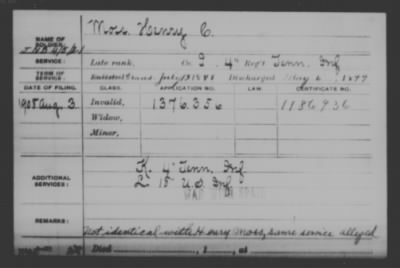 NAME OF SOLDIER: Moss, Henry C.
SERVICE: Late rank, Co. I, 4" Reg't Tenn. Inf
TERM OF SERVICE: Enlisted July 13 1898 Discharged May 6, 1899
DATE OF FILING. CLASS. APPLICATION NO. LAW. CERTIFICATE NO.
1908 Aug. 3. Invalid, 1376.356 1186936
Widow,
Minor,
ADDITIONAL SERVICES: K. 4" Tenn. Inf.
L. 15" U.S. Inf.
WAR
REMARKS: Not identical with Henry Moss, same service alleged
Died , 1 , at